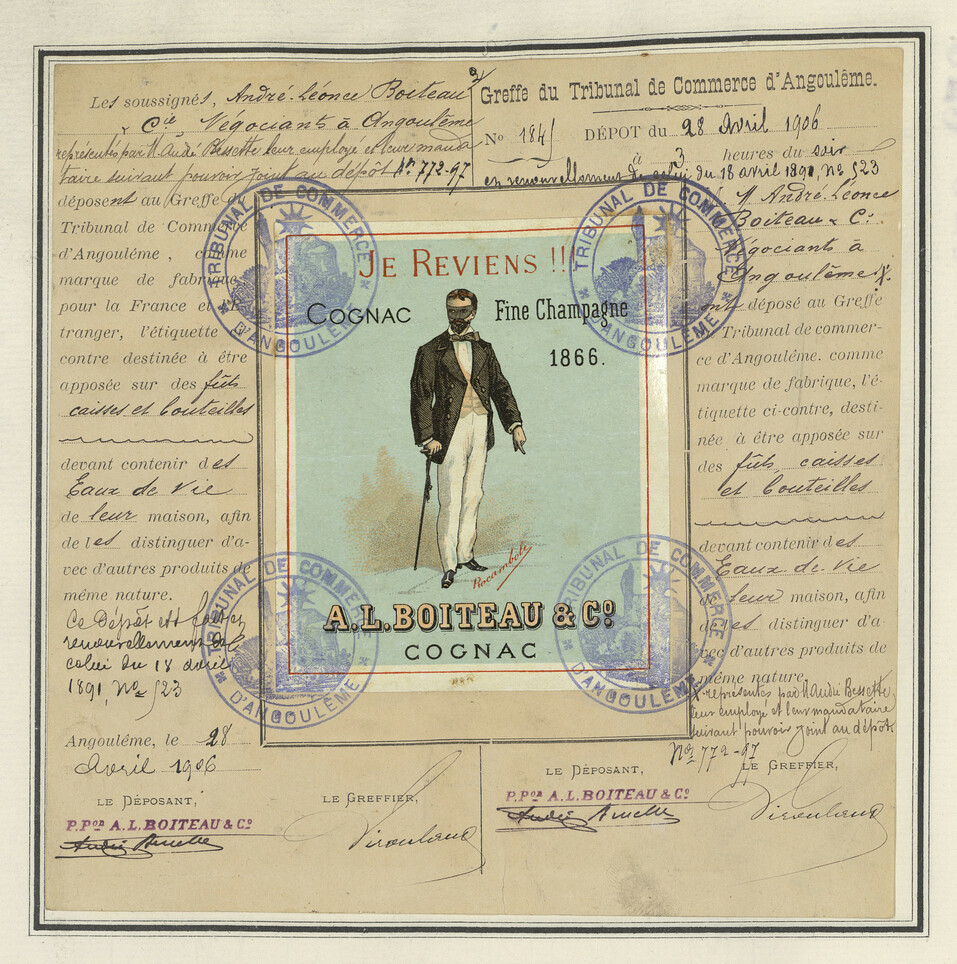 Les soussignés, André-Léonce Boiteau
& Cie Négociants à Angoulême
représentés par M André Bessette leur employé et leur manda
taire suivant pouvoir joint au dépôt No 772-97
déposent au Greffe du
Tribunal de Commerce
d'Angoulême, comme
marque de fabrique
pour la France et l'E-
tranger, l'étiquette ci-
contre destinée à être
apposée sur des fûts
caisses et bouteilles
devant contenir des
Eaux de Vie
de leur maison, afin
de les distinguer d'a-
vec d'autres produits de
même nature.
Ce Dépôt est fait en
renouvellement de
celui du 18 avril
1891, No 523
Angoulême, le 28
Avril 1906
LE DÉPOSANT,
P.Pon A.L.BOITEAU & Co
André Bessette
LE GREFFIER,
Greffe du Tribunal de Commerce d'Angoulême.
No 1845 DÉPOT du 28 Avril 1906
à 3 heures du soir
en renouvellement de celui du 18 avril 1891, No 523
M André-Léonce
Boiteau & Cie
Négociants à
Angoulême
ont déposé au Greffe
du Tribunal de commer-
ce d'Angoulême. comme
marque de fabrique, l'é-
tiquette ci-contre, desti-
née à être apposée sur
des fûts, caisses
et bouteilles
devant contenir des
Eaux-de-Vie
de leur maison, afin
de les distinguer d'a-
vec d'autres produits de
même nature.
représentés par M André Bessette
leur employé et leur mandataire
suivant pouvoir joint au dépôt
No 772-97
LE DÉPOSANT,
P.Pon A.L.BOITEAU & Co
André Bessette
LE GREFFIER,
JE REVIENS !!
COGNAC Fine Champagne
1866.
Rocambole
A.L.BOITEAU & Co
COGNAC
TRIBUNAL DE COMMERCE
D'ANGOULÊME
TRIBUNAL DE COMMERCE
D'ANGOULÊME
TRIBUNAL DE COMMERCE
D'ANGOULÊME
TRIBUNAL DE COMMERCE
D'ANGOULÊME